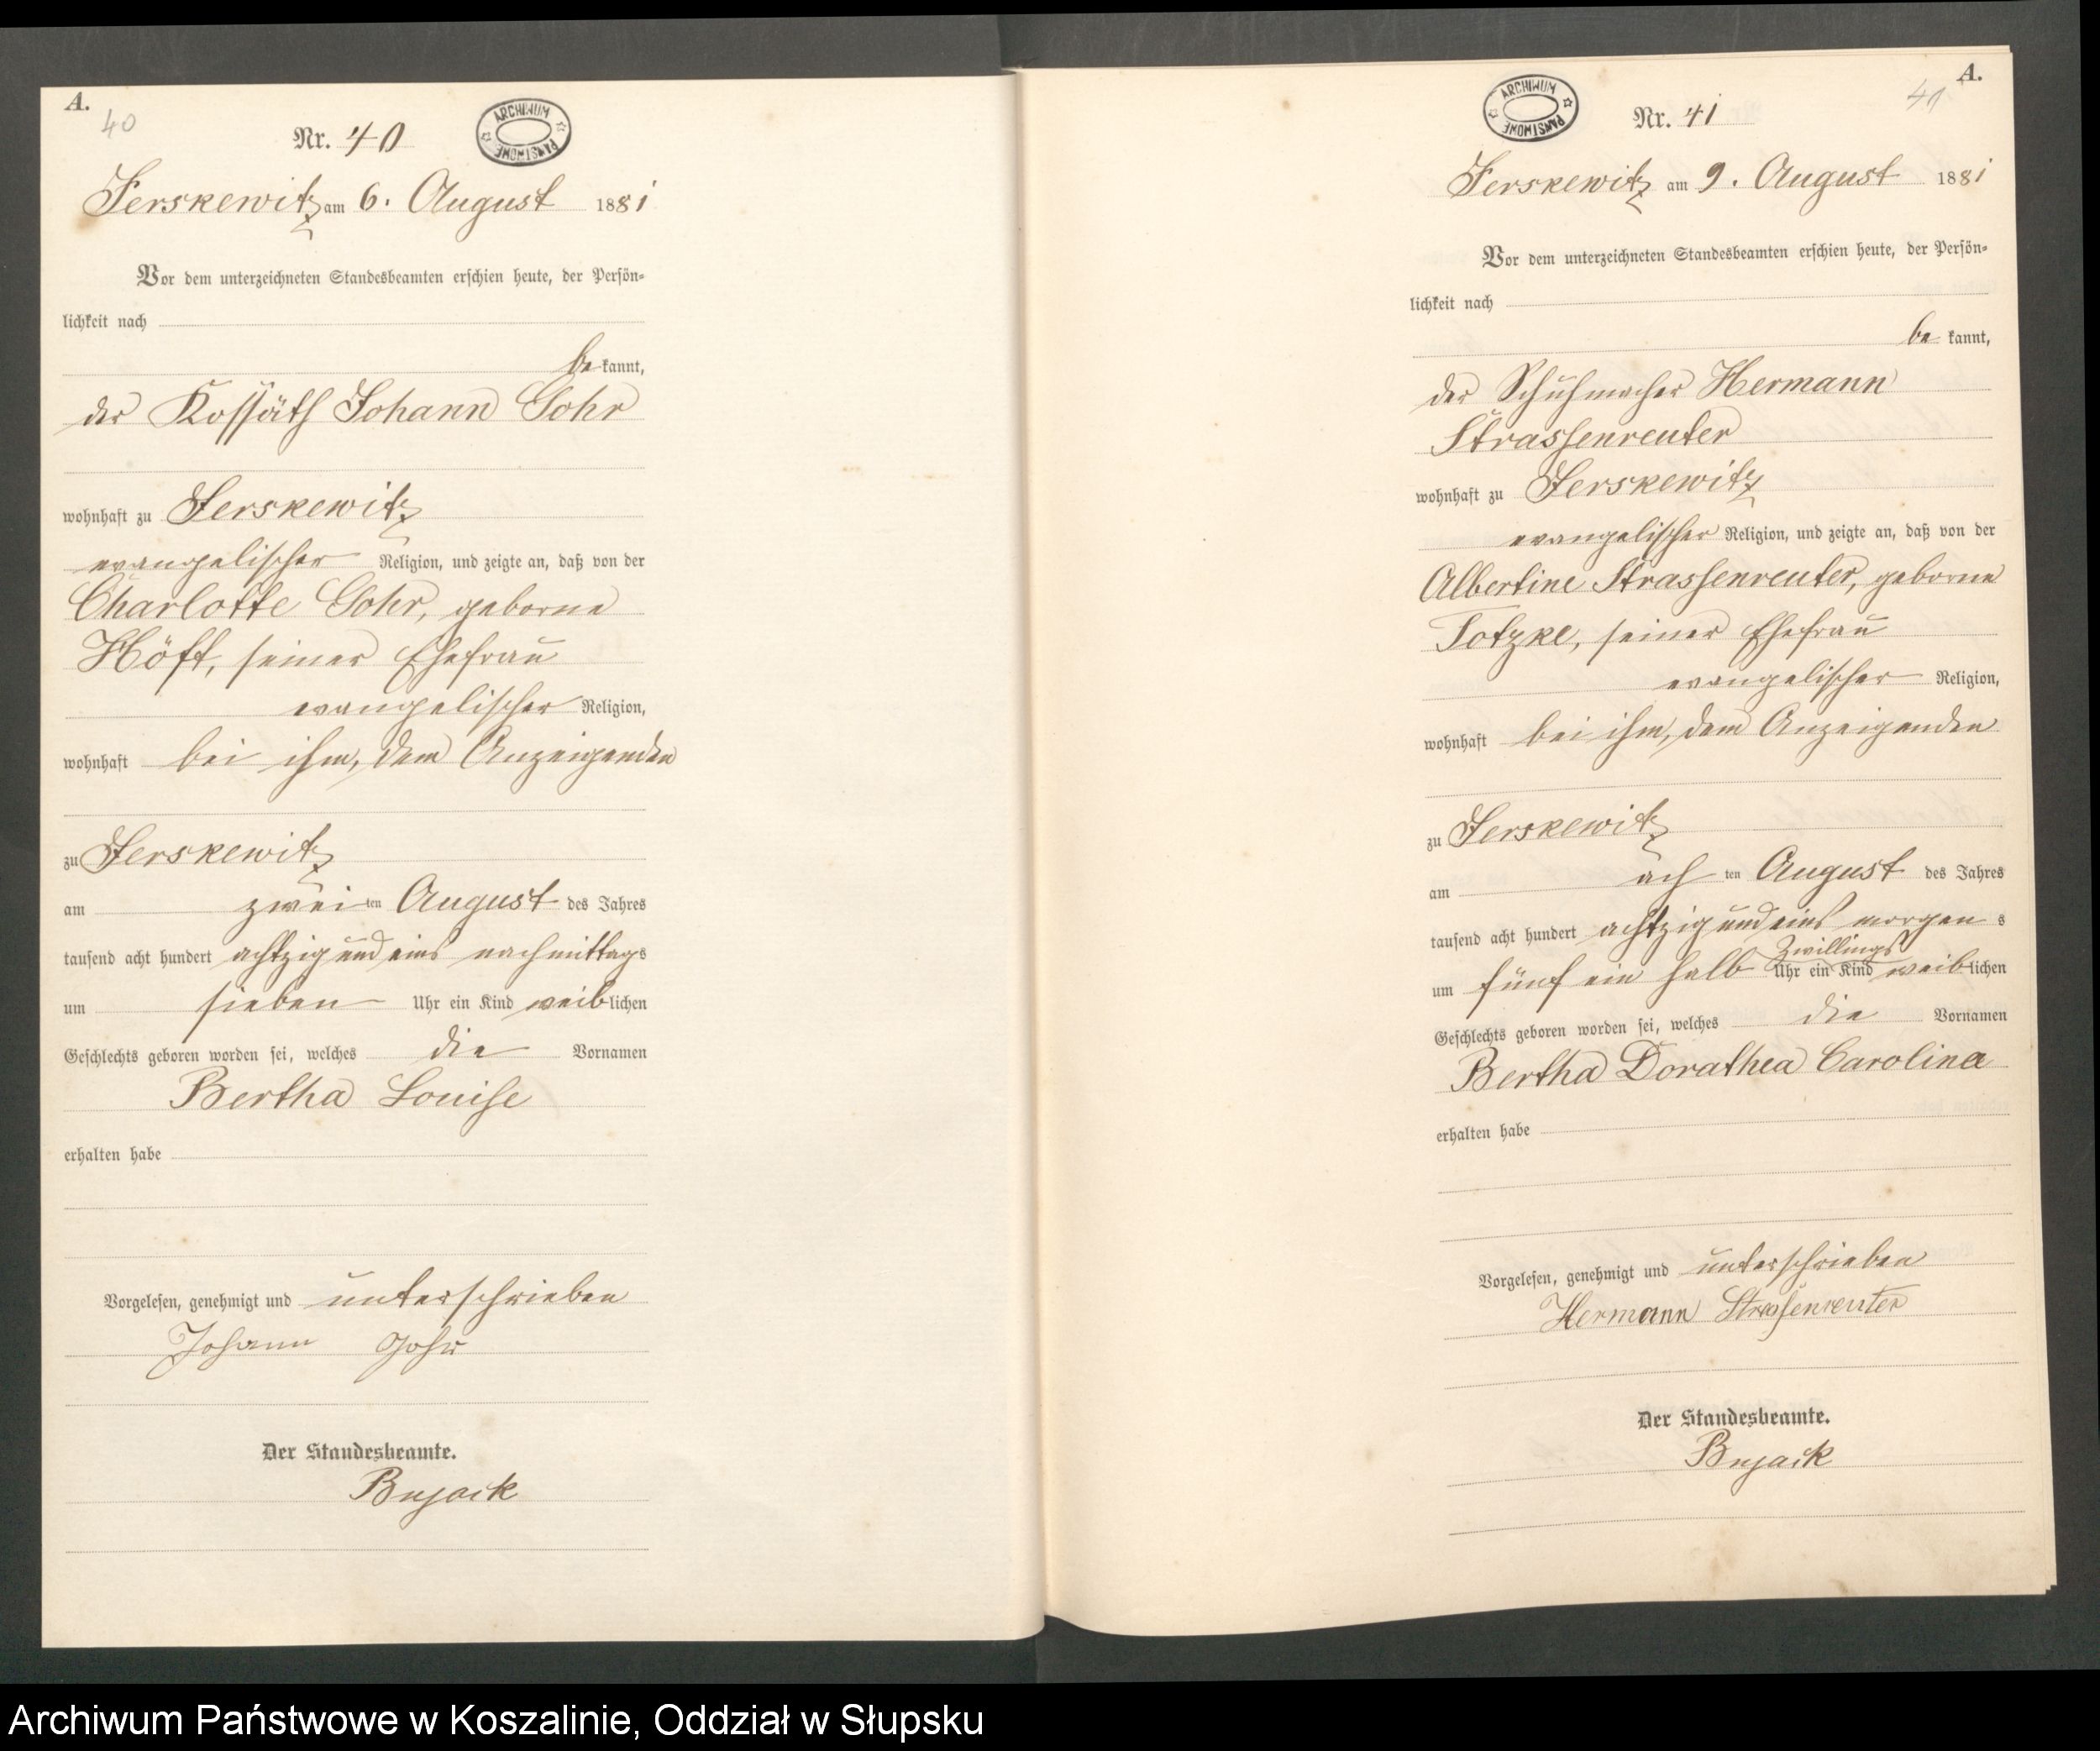 A.
40
Nr. 40
ARCHIWUM PAŃSTWOWE
Jerskewitz am 6. August 1881
Vor dem unterzeichneten Standesbeamten erschien heute, der Persön-
lichkeit nach
be kannt,
der Kossäth Johann Gohr
wohnhaft zu Jerskewitz
evangelischer Religion, und zeigte an, daß von der
Charlotte Gohr, geborne
Höft, seiner Ehefrau
evangelischer Religion,
wohnhaft bei ihm, dem Anzeigenden
zu Jerskewitz
am zwei ten August des Jahres
tausend acht hundert achtzig und eins nachmittags
um sieben Uhr ein Kind weiblichen
Geschlechts geboren worden sei, welches die Vornamen
Bertha Louise
erhalten habe
Vorgelesen, genehmigt und unterschrieben
Johann Gohr
Der Standesbeamte.
Bujack
A.
41
Nr. 41
ARCHIWUM PAŃSTWOWE
Jerskewitz am 9. August 1881
Vor dem unterzeichneten Standesbeamten erschien heute, der Persön-
lichkeit nach
be kannt,
der Schuhmacher Hermann
Strassenreuter
wohnhaft zu Jerskewitz
evangelischer Religion, und zeigte an, daß von der
Albertine Strassenreuter, geborne
Totzke, seiner Ehefrau
evangelischer Religion,
wohnhaft bei ihm, dem Anzeigenden
zu Jerskewitz
am ach ten August des Jahres
tausend acht hundert achtzig und eins morgens
Zwillings
um fünf ein halb Uhr ein Kind weiblichen
Geschlechts geboren worden sei, welches die Vornamen
Bertha Dorathea Carolina
erhalten habe
Vorgelesen, genehmigt und unterschrieben
Hermann Strassenreuter
Der Standesbeamte.
Bujack
Archiwum Państwowe w Koszalinie, Oddział w Słupsku